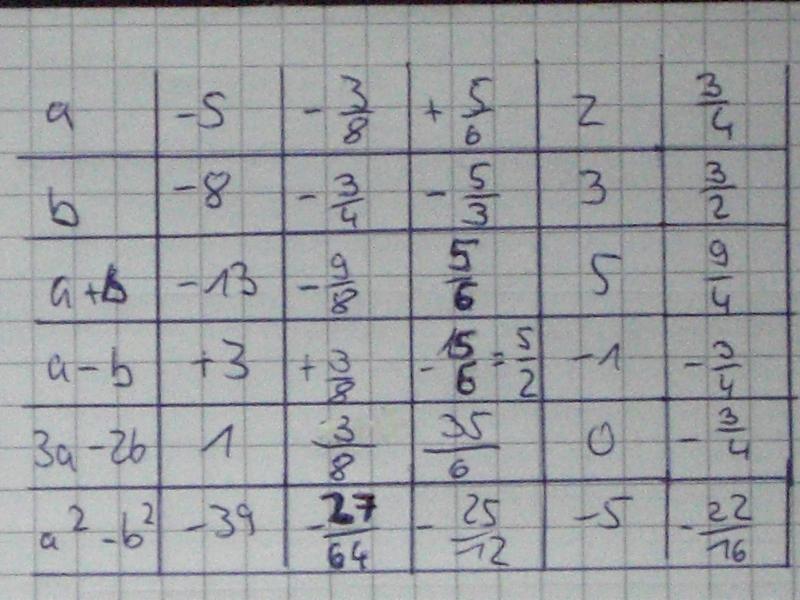 a -5 -3/8 +5/6 2 3/4
b -8 -3/4 -5/3 3 3/2
a+b -13 -9/8 5/6 5 9/4
a-b +3 +3/8 -15/6=5/2 -1 -3/4
3a-2b 1 3/8 35/6 0 -3/4
a²-b² -39 -27/64 -25/12 -5 -22/16